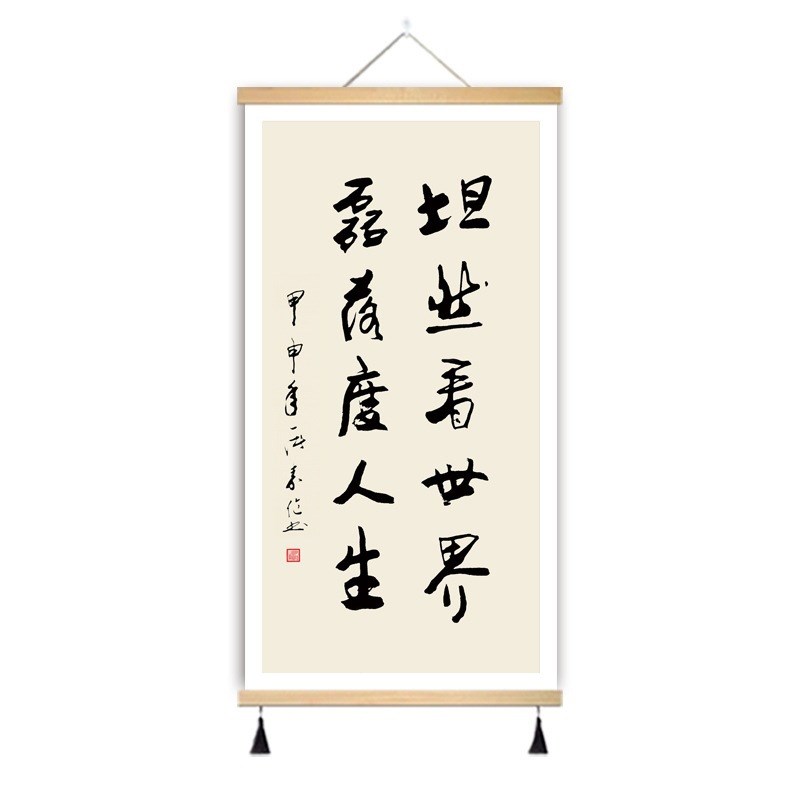 坦然看世界
磊落度人生
甲申年